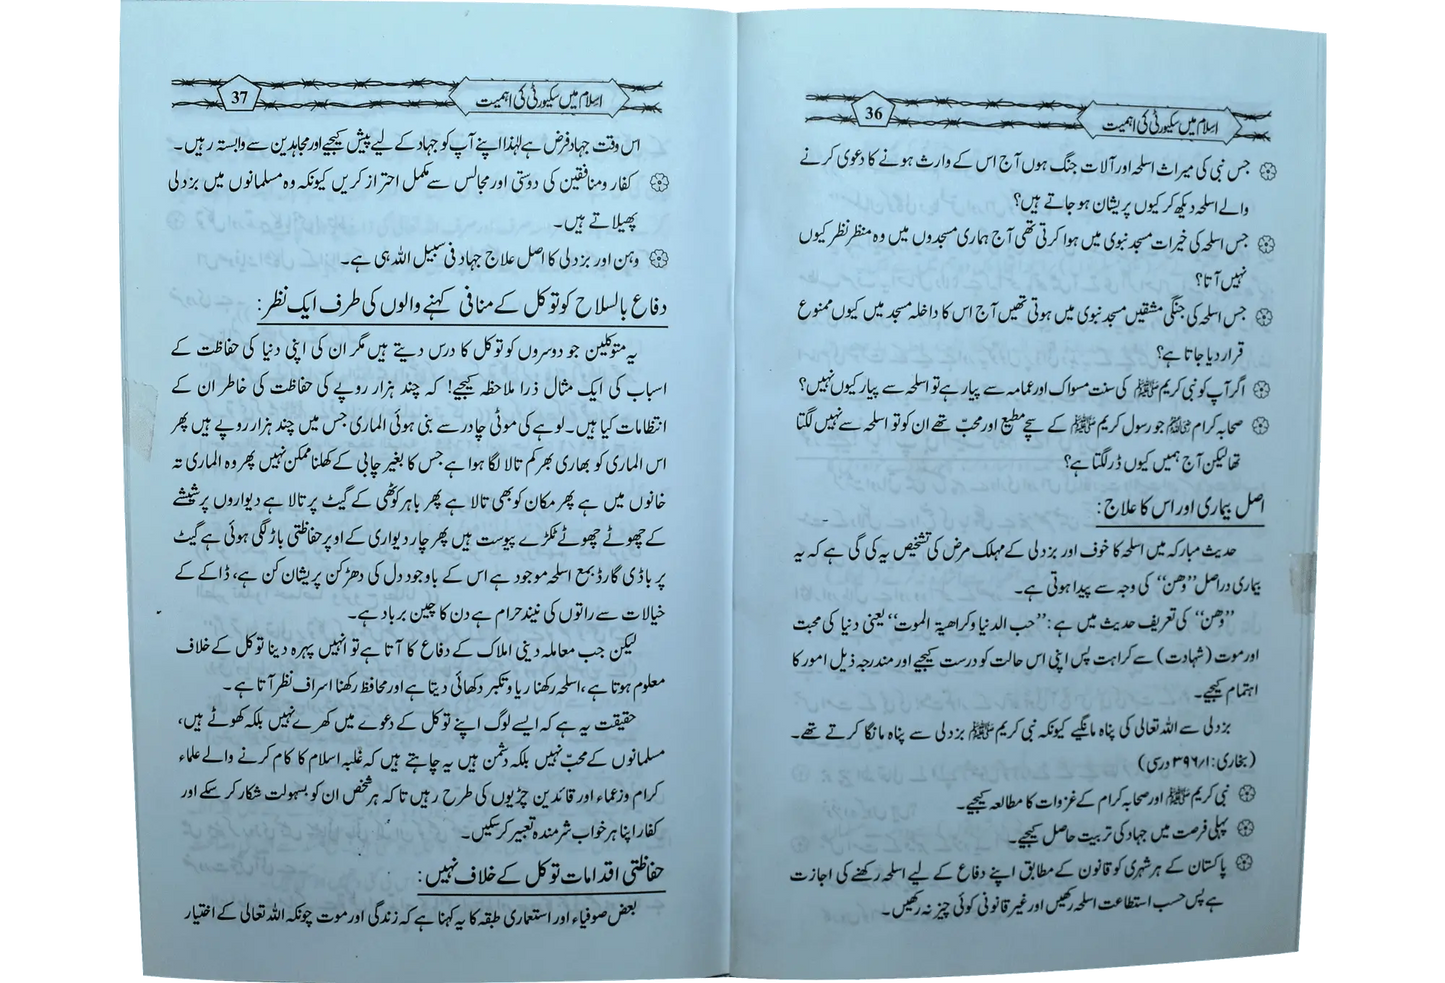 اسلام میں سکیورٹی کی اہمیت
36
جس نبی کی میراث اسلحہ اور آلات جنگ ہوں آج اس کے وارث ہونے کا دعوی کرنے
والے اسلحہ دیکھ کر کیوں پریشان ہو جاتے ہیں؟
جس اسلحہ کی خیرات مسجد نبوی میں ہوا کرتی تھی آج ہماری مسجدوں میں وہ منظر نظر کیوں
نہیں آتا؟
جس اسلحہ کی جنگی مشقیں مسجد نبوی میں ہوتی تھیں آج اس کا داخلہ مسجد میں کیوں ممنوع
قرار دیا جاتا ہے؟
اگر آپ کو نبی کریم ﷺ کی سنت مسواک اور عمامہ سے پیار ہے تو اسلحہ سے پیار کیوں نہیں؟
صحابہ کرام ﷢ جو رسول کریم ﷺ کے سچے مطیع اور محبّ تھے ان کو تو اسلحہ سے نہیں لگتا
تھا لیکن آج ہمیں کیوں ڈر لگتا ہے؟
اصل بیماری اور اس کا علاج:
حدیث مبارکہ میں اسلحہ کا خوف اور بزدلی کے مہلک مرض کی تشخیص یہ کی گی ہے کہ یہ
بیماری دراصل ”وھن“ کی وجہ سے پیدا ہوتی ہے۔
”وھن“ کی تعریف حدیث میں ہے: ”حب الدنیا وکراھیۃ الموت“ یعنی دنیا کی محبت
اور موت (شہادت) سے کراہت پس اپنی اس حالت کو درست کیجیے اور مندرجہ ذیل امور کا
اہتمام کیجیے۔
بزدلی سے اللہ تعالی کی پناہ مانگیے کیونکہ نبی کریم ﷺ بزدلی سے پناہ مانگا کرتے تھے۔
(بخاری: ۱/۳۹۶ درسی)
نبی کریم ﷺ اور صحابہ کرام کے غزوات کا مطالعہ کیجیے۔
پہلی فرصت میں جہاد کی تربیت حاصل کیجیے۔
پاکستان کے ہر شہری کو قانون کے مطابق اپنے دفاع کے لیے اسلحہ رکھنے کی اجازت
ہے پس حسب استطاعت اسلحہ رکھیں اور غیر قانونی کوئی چیز نہ رکھیں۔
اسلام میں سکیورٹی کی اہمیت
37
اس وقت جہاد فرض ہے لہٰذا اپنے آپ کو جہاد کے لیے پیش کیجیے اور مجاہدین سے وابستہ رہیں۔
کفار و منافقین کی دوستی اور مجالس سے مکمل احتراز کریں کیونکہ وہ مسلمانوں میں بزدلی
پھیلاتے ہیں۔
وہن اور بزدلی کا اصل علاج جہاد فی سبیل اللہ ہی ہے۔
دفاع بالسلاح کو توکل کے منافی کہنے والوں کی طرف ایک نظر:
یہ متوکلین جو دوسروں کو توکل کا درس دیتے ہیں مگر ان کی اپنی دنیا کی حفاظت کے
اسباب کی ایک مثال ذرا ملاحظہ کیجیے! کہ چند ہزار روپے کی حفاظت کی خاطر ان کے
انتظامات کیا ہیں۔ لوہے کی موٹی چادر سے بنی ہوئی الماری جس میں چند ہزار روپے ہیں پھر
اس الماری کو بھاری بھر کم تالا لگا ہوا ہے جس کا بغیر چابی کے کھلنا ممکن نہیں پھر وہ الماری تہ
خانوں میں ہے پھر مکان کو بھی تالا ہے پھر باہر کوٹھی کے گیٹ پر تالا ہے دیواروں پر شیشے
کے چھوٹے چھوٹے ٹکڑے پیوست ہیں پھر چار دیواری کے اوپر حفاظتی باڑ لگی ہوئی ہے گیٹ
پر باڈی گارڈ بمع اسلحہ موجود ہے اس کے باوجود دل کی دھڑکن پریشان کن ہے، ڈاکے کے
خیالات سے راتوں کی نیند حرام ہے دن کا چین برباد ہے۔
لیکن جب معاملہ دینی املاک کے دفاع کا آتا ہے تو انہیں پہرہ دینا توکل کے خلاف
معلوم ہوتا ہے، اسلحہ رکھنا ریا و تکبر دکھائی دیتا ہے اور محافظ رکھنا اسراف نظر آتا ہے۔
حقیقت یہ ہے کہ ایسے لوگ اپنے توکل کے دعوے میں کھرے نہیں بلکہ کھوٹے ہیں،
مسلمانوں کے محبّ نہیں بلکہ دشمن ہیں یہ چاہتے ہیں کہ غلبہ اسلام کا کام کرنے والے علماء
کرام و زعماء اور قائدین چڑیوں کی طرح رہیں تاکہ ہر شخص ان کو بسہولت شکار کر سکے اور
کفار اپنا ہر خواب شرمندہ تعبیر کر سکیں۔
حفاظتی اقدامات توکل کے خلاف نہیں:
بعض صوفیاء اور استعماری طبقہ کا یہ کہنا ہے کہ زندگی اور موت چونکہ اللہ تعالی کے اختیار